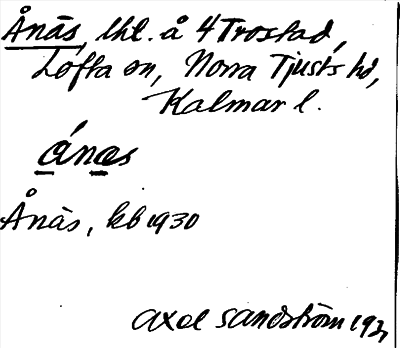 Ånäs, lht. å 4 Trostad,
Lofta sn, Norra Tjusts hd,
Kalmar l.
ánas
Ånäs, kb 1930
Axel Sandström 193